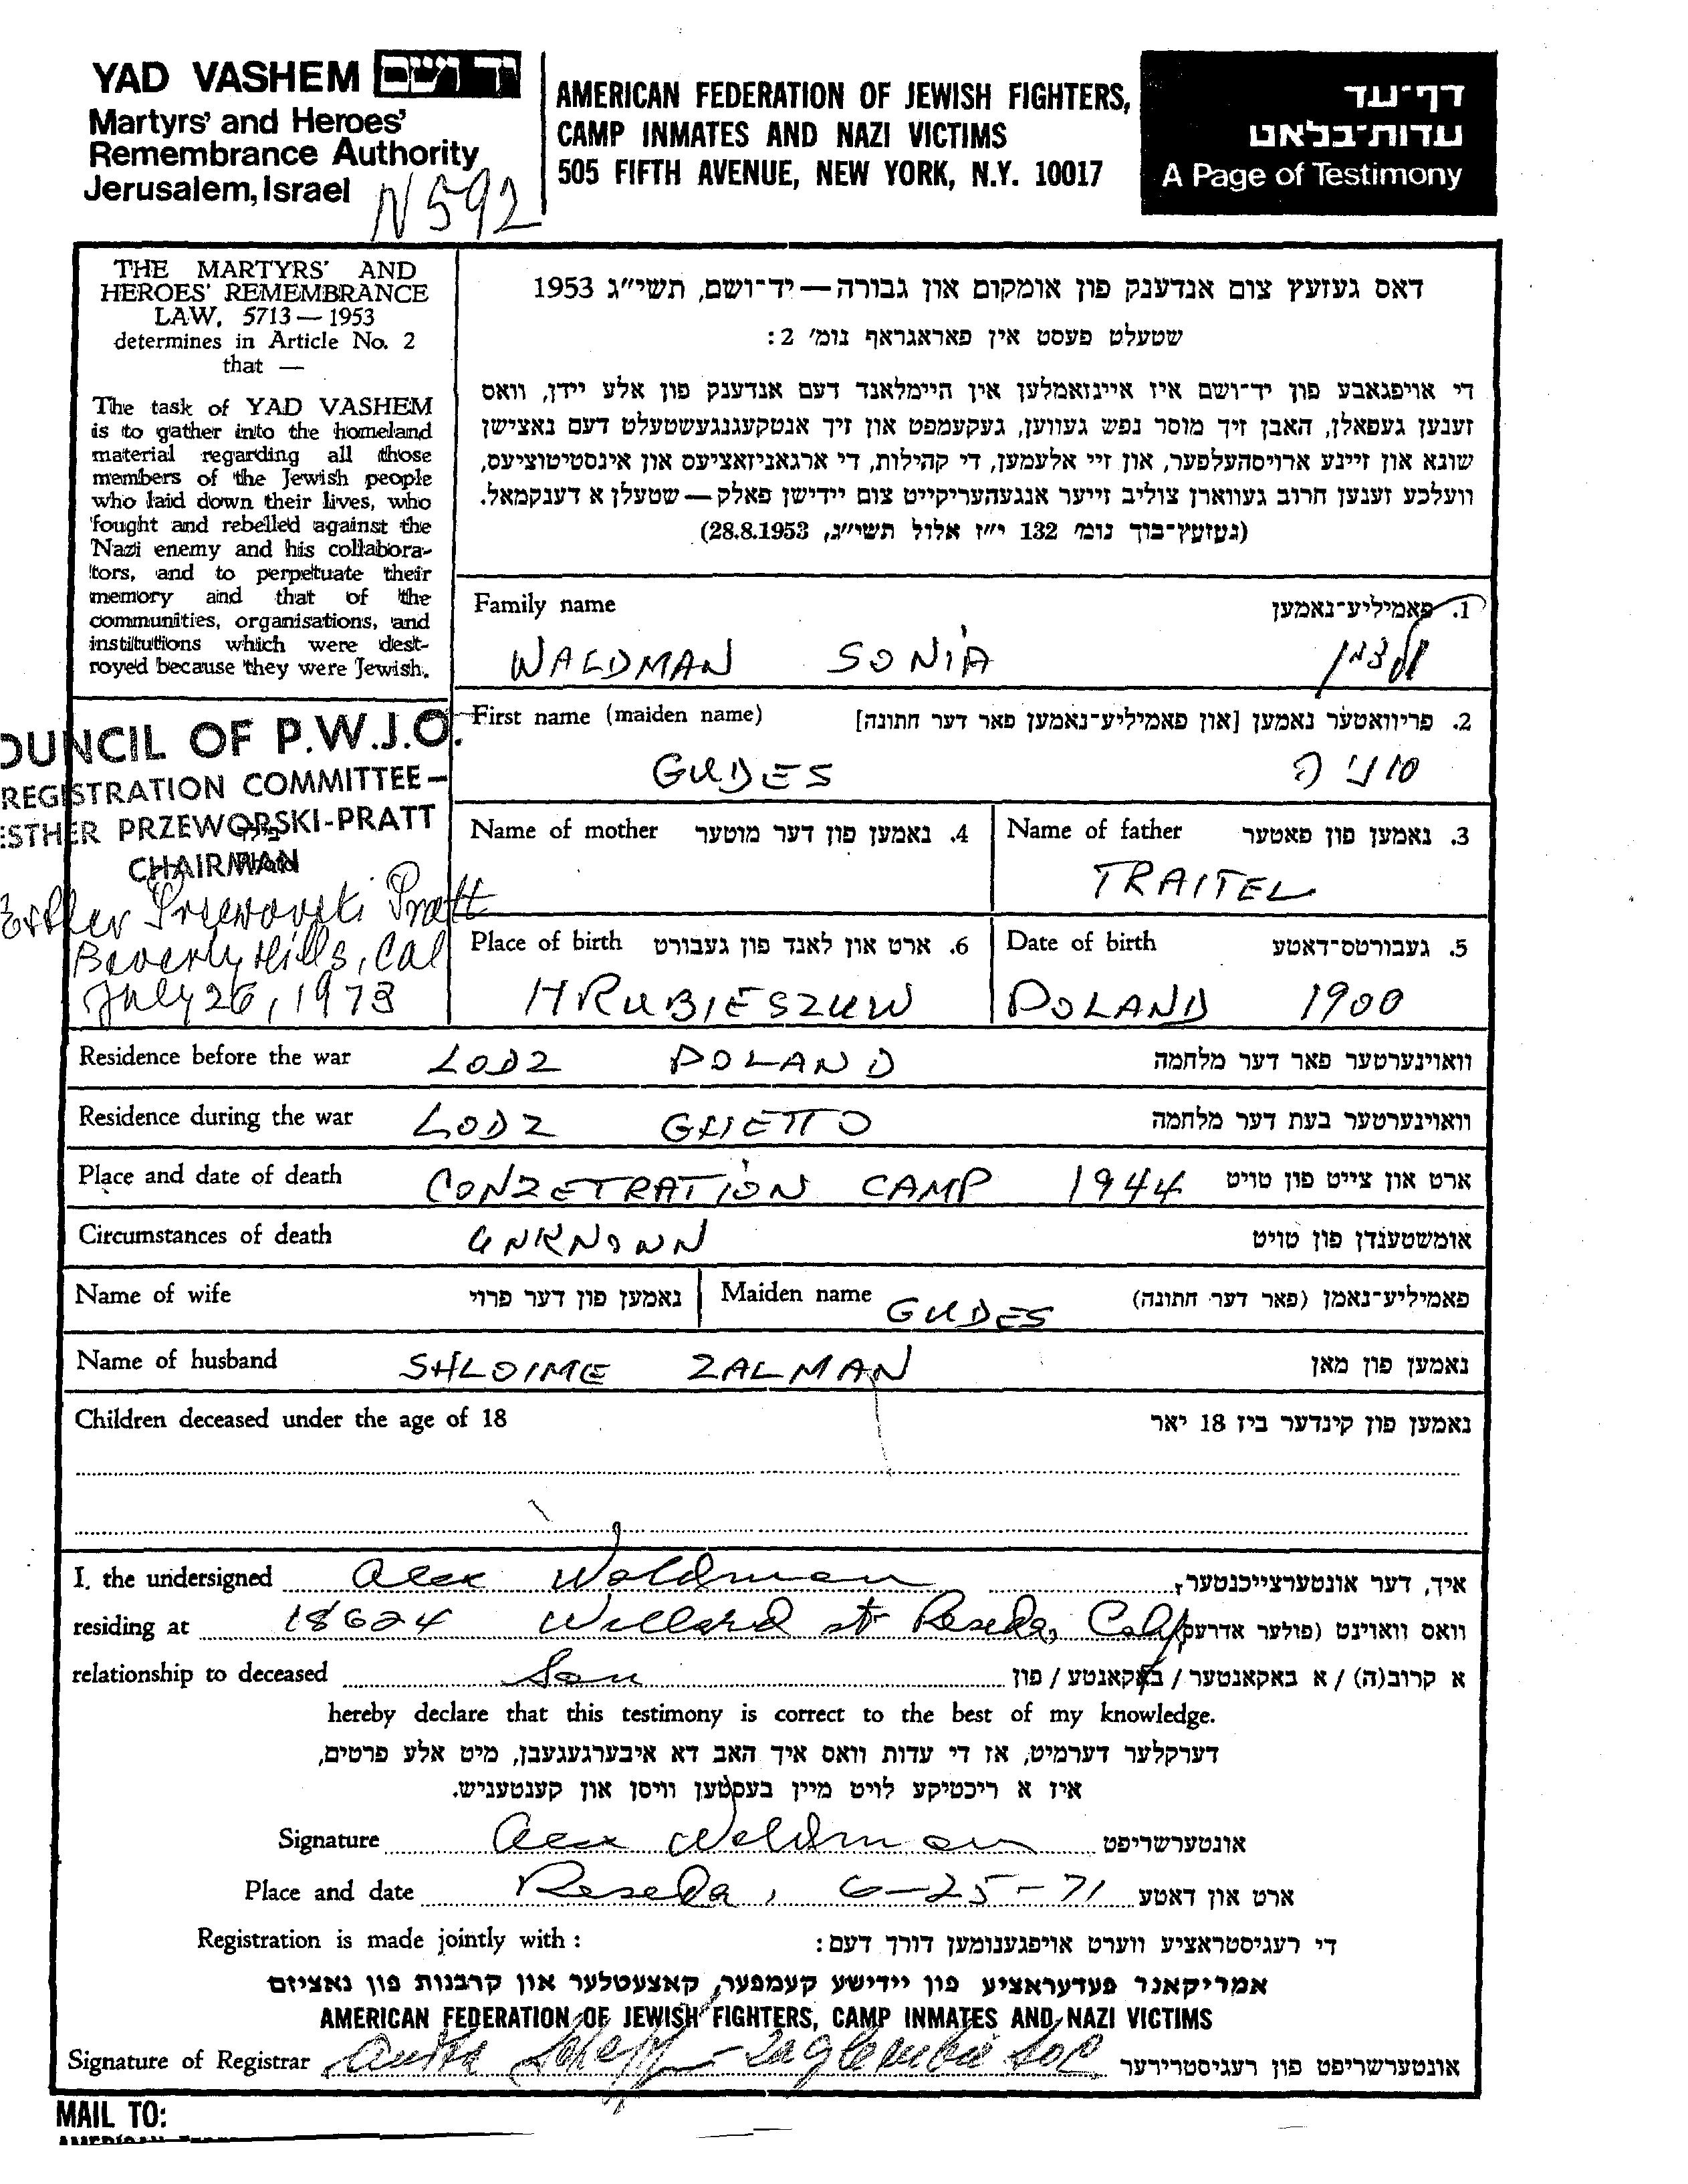 YAD VASHEM יד ושם
Martyrs' and Heroes'
Remembrance Authority
Jerusalem, Israel
N592
AMERICAN FEDERATION OF JEWISH FIGHTERS,
CAMP INMATES AND NAZI VICTIMS
505 FIFTH AVENUE, NEW YORK, N.Y. 10017
דף־עד
עדות־בלאט
A Page of Testimony
THE MARTYRS' AND
HEROES' REMEMBRANCE
LAW, 5713 — 1953
determines in Article No. 2
that —
The task of YAD VASHEM
is to gather into the homeland
material regarding all those
members of the Jewish people
who laid down their lives, who
fought and rebelled against the
Nazi enemy and his collabora-
tors, and to perpetuate their
memory and that of the
communities, organisations, and
institutions which were dest-
royed because they were Jewish.
דאס געזעץ צום אנדענק פון אומקום און גבורה — יד־ושם, תשי״ג 1953
שטעלט פעסט אין פאראגראף נומ׳ 2:
די אויפגאבע פון יד־ושם איז איינזאמלען אין היימלאנד דעם אנדענק פון אלע יידן, וואס
זענען געפאלן, האבן זיך מוסר נפש געווען, געקעמפט און זיך אנטקעגנגעשטעלט דעם נאצישן
שונא און זיינע ארויסהעלפער, און זיי אלעמען, די קהילות, די ארגאניזאציעס און אינסטיטוציעס,
וועלכע זענען חרוב געווארן צוליב זייער אנגעהעריקייט צום יידישן פאלק — שטעלן א דענקמאל.
(געזעץ־בוך נומ׳ 132 י״ז אלול תשי״ג, 28.8.1953)
Family name 1. פאמיליע־נאמען
WALDMAN SONIA
OUNCIL OF P.W.J.O.
REGISTRATION COMMITTEE —
ESTHER PRZEWORSKI-PRATT
CHAIRMAN
Esther Przeworski Pratt
Beverly Hills, Cal
July 26, 1973
First name (maiden name) 2. פריוואטער נאמען [און פאמיליע־נאמען פאר דער חתונה]
GUDES סוניה
Name of mother 4. נאמען פון דער מוטער
Name of father 3. נאמען פון פאטער
TRAITEL
Place of birth 6. ארט און לאנד פון געבורט
Date of birth 5. געבורטס־דאטע
HRUBIESZUW POLAND 1900
Residence before the war LODZ POLAND וואוינערטער פאר דער מלחמה
Residence during the war LODZ GHETTO וואוינערטער בעת דער מלחמה
Place and date of death CONZETRATION CAMP 1944 ארט און צייט פון טויט
Circumstances of death UNKNOWN אומשטענדן פון טויט
Name of wife נאמען פון דער פרוי Maiden name GUDES פאמיליע־נאמן (פאר דער חתונה)
Name of husband SHLOIME ZALMAN נאמען פון מאן
Children deceased under the age of 18 נאמען פון קינדער ביז 18 יאר
I, the undersigned Alex Waldman איך, דער אונטערצייכנטער,
residing at 18624 Willard st Reseda, Calif וואס וואוינט (פולער אדרעס
relationship to deceased Son א קרוב(ה) / א באקאנטער / באקאנטע / פון
hereby declare that this testimony is correct to the best of my knowledge.
דערקלער דערמיט, אז די עדות וואס איך האב דא איבערגעגעבן, מיט אלע פרטים,
איז א ריכטיקע לויט מיין בעסטען וויסן און קענטעניש.
Signature Alex Waldman אונטערשריפט
Place and date Reseda, 6-25-71 ארט און דאטע
Registration is made jointly with : די רעגיסטראציע ווערט אויפגענומען דורך דעם:
אמריקאנר פעדעראציע פון יידישע קעמפער, קאצעטלער און קרבנות פון נאציזם
AMERICAN FEDERATION OF JEWISH FIGHTERS, CAMP INMATES AND NAZI VICTIMS
Signature of Registrar Zaglembie Soc אונטערשריפט פון רעגיסטרירער
MAIL TO: